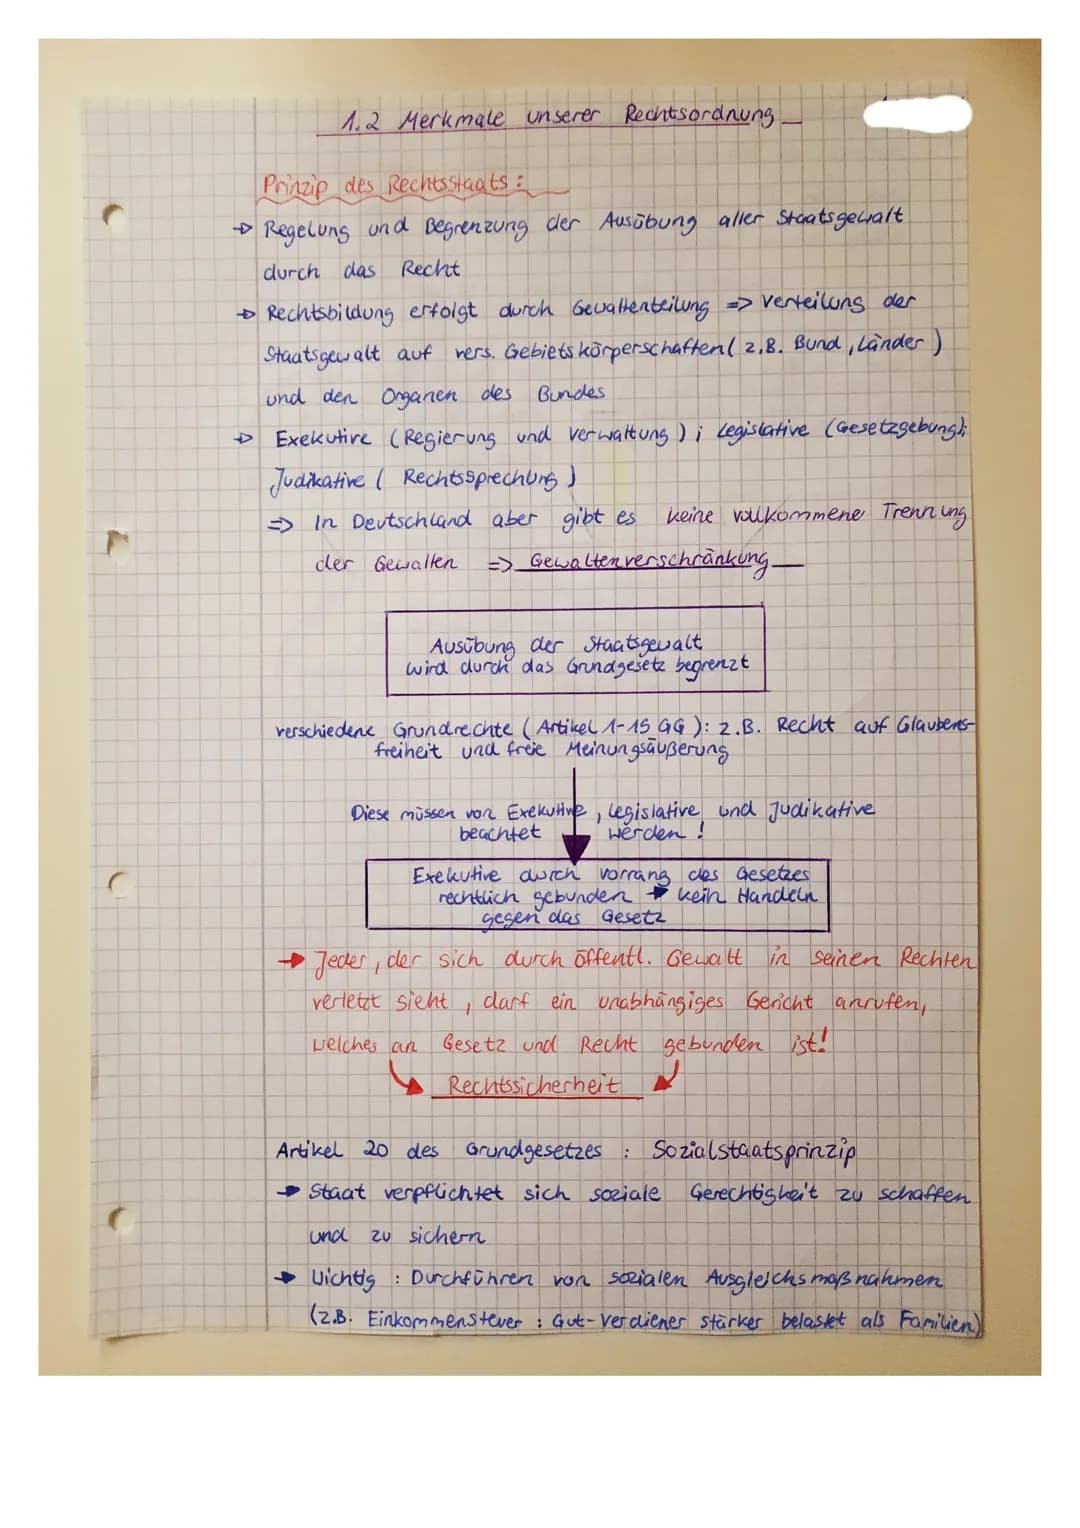 1.2 Merkmale unserer Rechtsordnung
Prinzip des Rechtsstaats:
→ Regelung und Begrenzung der Ausübung aller Staatsgewalt
durch das Recht
→ Rechtsbildung erfolgt durch Gewaltenteilung => Verteilung der
Staatsgewalt auf vers. Gebietskörperschaften (z.B. Bund, Länder)
und den Organen des Bundes
→ Exekutive (Regierung und Verwaltung); Legislative (Gesetzgebung);
Judikative (Rechtssprechung)
=> In Deutschland aber gibt es keine vollkommene Trennung
der Gewalten => Gewaltenverschränkung
Ausübung der Staatsgewalt
wird durch das Grundgesetz begrenzt
verschiedene Grundrechte (Artikel 1-15 GG): z.B. Recht auf Glaubens-
freiheit und freie Meinungsäußerung
Diese müssen von Exekutive, Legislative und Judikative
beachtet werden!
Exekutive durch Vorrang des Gesetzes
rechtlich gebunden → kein Handeln
gegen das Gesetz
→ Jeder, der sich durch öffentl. Gewalt in seinen Rechten
verletzt sieht, darf ein unabhängiges Gericht anrufen,
welches an Gesetz und Recht gebunden ist!
Rechtssicherheit
Artikel 20 des Grundgesetzes: Sozialstaatsprinzip
→ Staat verpflichtet sich soziale Gerechtigkeit zu schaffen
und zu sichern
→ Wichtig: Durchführen von sozialen Ausgleichsmaßnahmen
(z.B. Einkommensteuer: Gut-Verdiener stärker belastet als Familien)